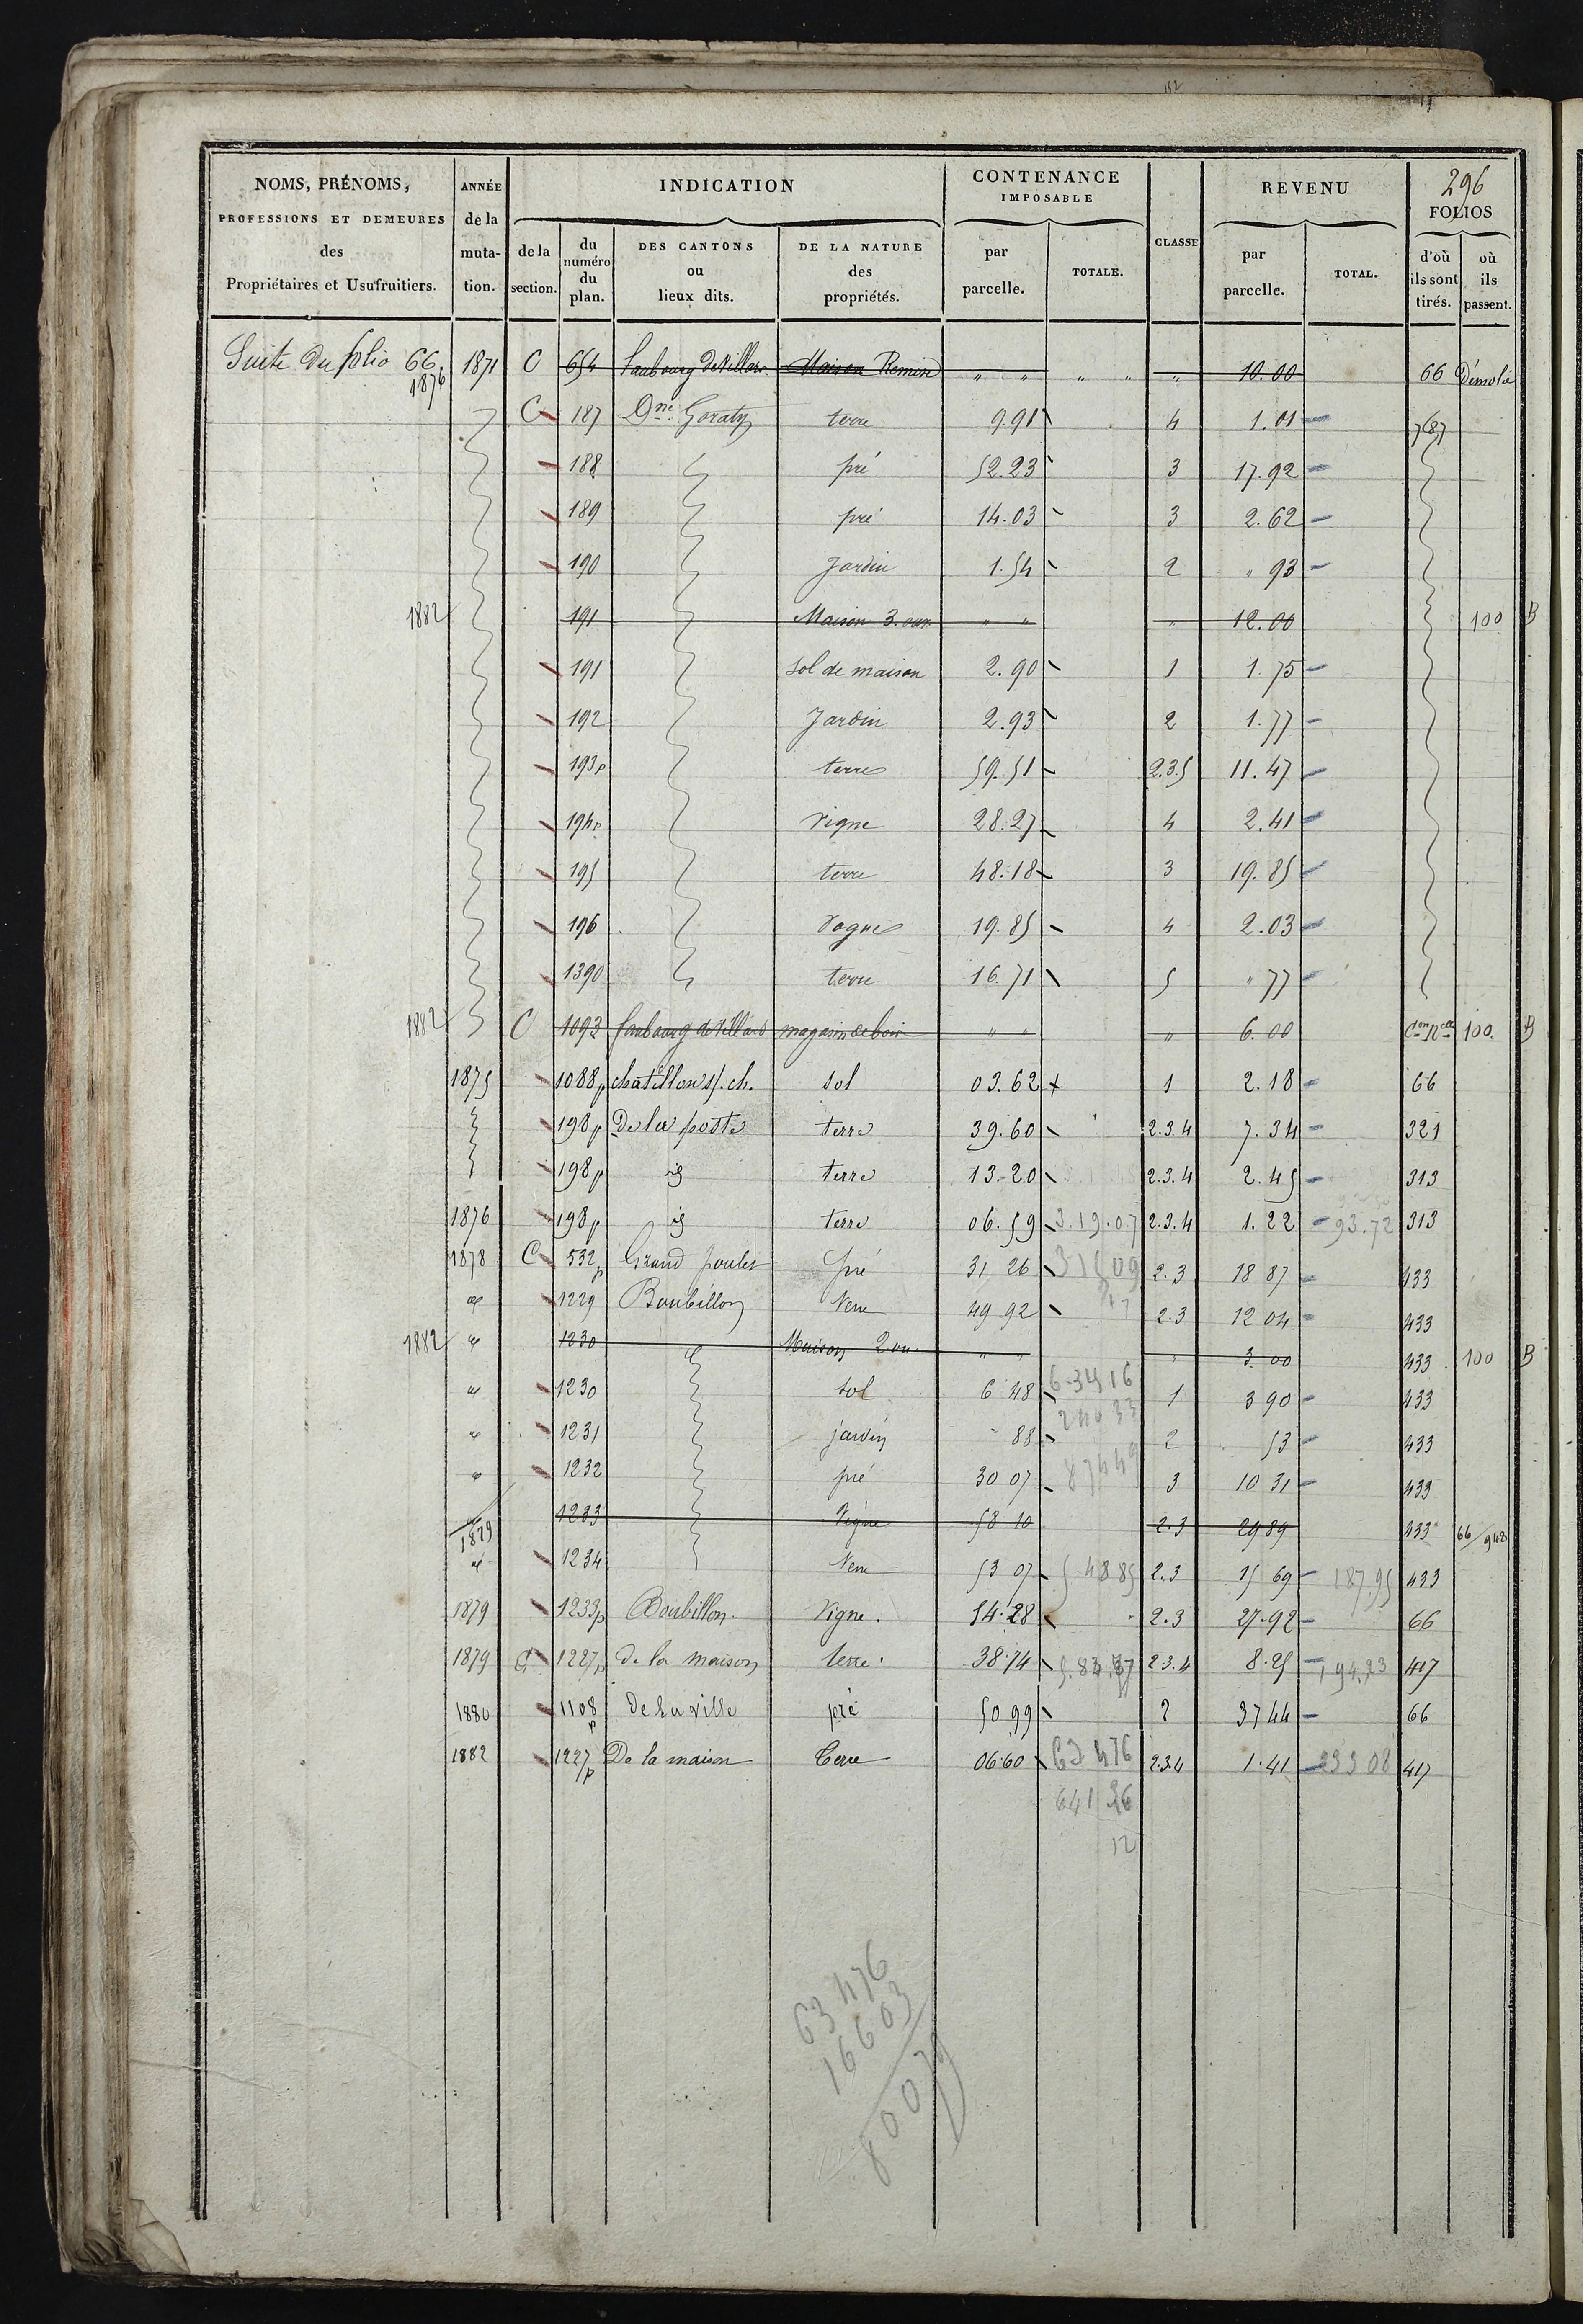 NOMS, PRÉNOMS, PROFESSIONS ET DEMEURES des Propriétaires et Usufruitiers.
ANNÉE de la mutation.
INDICATION
de la section.
du numéro du plan.
DES CANTONS ou lieux dits.
DE LA NATURE des propriétés.
CONTENANCE IMPOSABLE
par parcelle.
TOTALE.
CLASSE
REVENU
par parcelle.
TOTAL.
296
FOLIOS
d'où ils sont tirés.
où ils passent.
Suite du folio 66. 1871 C 654 faubourg de Villars Maison " " " " " 10.00 66 Démolie
1876
C 187 Dne Goraty terre 9.91 4 1.01 787
188 pré 52.23 3 17.92
189 pré 14.03 3 2.62
190 Jardin 1.54 2 " 93
1882 191 Maison 3. ouv. " " " 12.00 100 B
191 sol de maison 2.90 1 1.75
192 Jardin 2.93 2 1.77
193p terres 59.51 2.3.5 11.47
194p vigne 28.27 4 2.41
195 terre 48.18 3 19.85
196 19.85 4 2.03
1390 terre 16.71 5 " 77
1882 C 1093 faubourg de Villars magasin de bois " " " 6.00 Con Nelle 100. B
1875 1088p chatillon s/. ch. sol 03.62 1 2.18 66
198p De la poste terre 39.60 2.3.4 7.34 321
198p id terre 13.20 2.3.4 2.45 313
1876 198p id terre 06.59 3.19.07 2.3.4 1.22 93.72 313
1878 C 532p Grand poulet pré 31 26 2.3 18 87 433
1229 Boubillon Terre 49 92 2.3 12 04 433
1882 1230 Maison 2 ou. " " " 3.00 433 100 B
1230 sol 6 48 1 3 90 433
1231 jardin 88 2 53 433
1232 pré 30 07 87449 3 10 31 433
1879 1233 Vigne 58 10 2.3 29 89 433 66/948
1234 Terre 53 07 5 48 85 2.3 15 69 187 95 433
1879 1233p Boubillon. Vigne. 54.28 2.3 27.92 66
1879 C 1227p de la maison terre. 38.74 2.3.4 8.25 194.23 417
1880 1108p de la ville pré 50 99 2 37 44 66
1882 1227p De la maison Terre 06.60 63 476 2.3.4 1.41 233 08 417
641 36
12
63 476
16603
80079